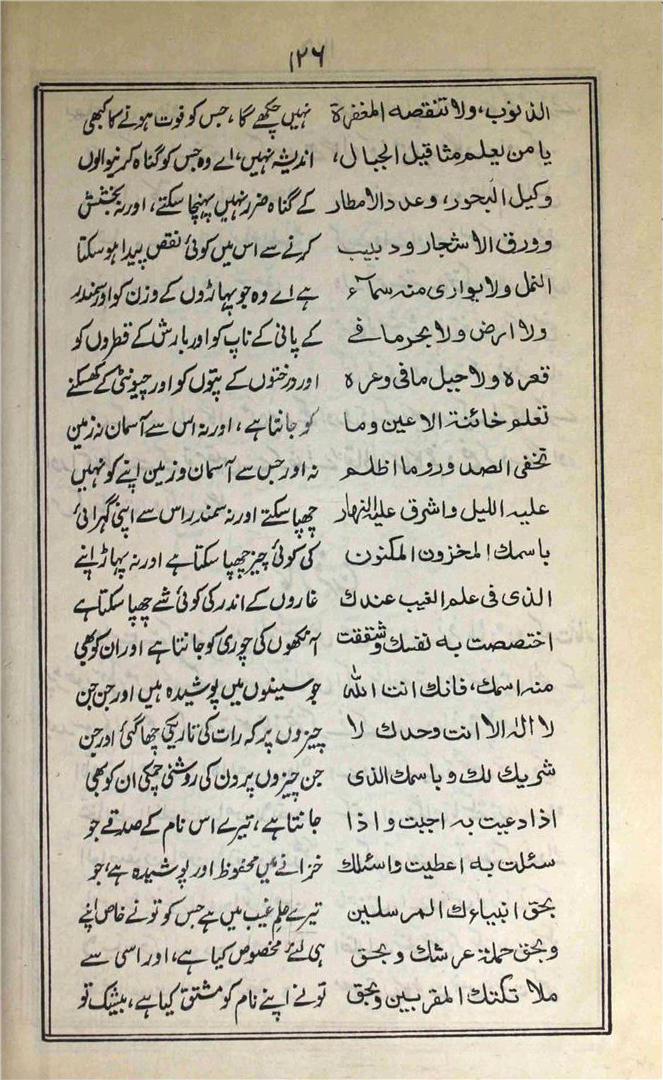 ۱۲۶
الذنوب، ولا تنقصه المغفرة
يا من يعلم مثاقيل الجبال،
وكيل البحور، وعدد الامطار
وورق الاشجار ودبيب
النمل ولا يوارى منه سمآء
ولا ارض ولا بحر ما في
قعره ولا جبل ما فى وعره
تعلم خائنة الاعين وما
تخفى الصدور وما اظلم
عليه الليل واشرق عليه النهار
باسمك المخزون المكنون
الذى فى علم الغيب عندك
اختصصت به نفسك وشققت
منه اسمك، فانك انت الله
لا اله الا انت وحدك لا
شريك لك وباسمك الذى
اذا دعيت به اجبت واذا
سئلت به اعطيت واسئلك
بحق انبياءك المرسلين
وبحق حملة عرشك وبحق
ملائكتك المقربين وبحق
نہیں چکھے گا، جس کو فوت ہونے کا کبھی
اندیشہ نہیں، اے وہ جس کو گناہ کرنیوالوں
کے گناہ ضرر نہیں پہنچا سکتے، اور نہ بخشش
کرنے سے اس میں کوئی نقص پیدا ہو سکتا
ہے اے وہ جو پہاڑوں کے وزن کو اور سمندر
کے پانی کے ناپ کو اور بارش کے قطروں کو
اور درختوں کے پتوں کو اور چیونٹی کے کھسکنے
کو جانتا ہے، اور نہ اس سے آسمان نہ زمین
نہ اور جس سے آسمان و زمین اپنے کو نہیں
چھپا سکتے اور نہ سمندر اس سے اپنی گہرائی
کی کوئی چیز چھپا سکتا ہے اور نہ پہاڑ اپنے
غاروں کے اندر کی کوئی شے چھپا سکتا ہے
آنکھوں کی چوری کو جانتا ہے اور ان کو بھی
جو سینوں میں پوشیدہ ہیں اور جن جن
چیزوں پر کہ رات کی تاریکی چھا گئی اور جن
جن چیزوں پر دن کی روشنی چمکی ان کو بھی
جانتا ہے، تیرے اس نام کے صدقے جو
خزانے میں محفوظ اور پوشیدہ ہے، جو
تیرے علم غیب میں ہے جس کو تو نے خاص اپنے
ہی لئے مخصوص کیا ہے، اور اسی سے
تو نے اپنے نام کو مشتق کیا ہے، بیشک تو